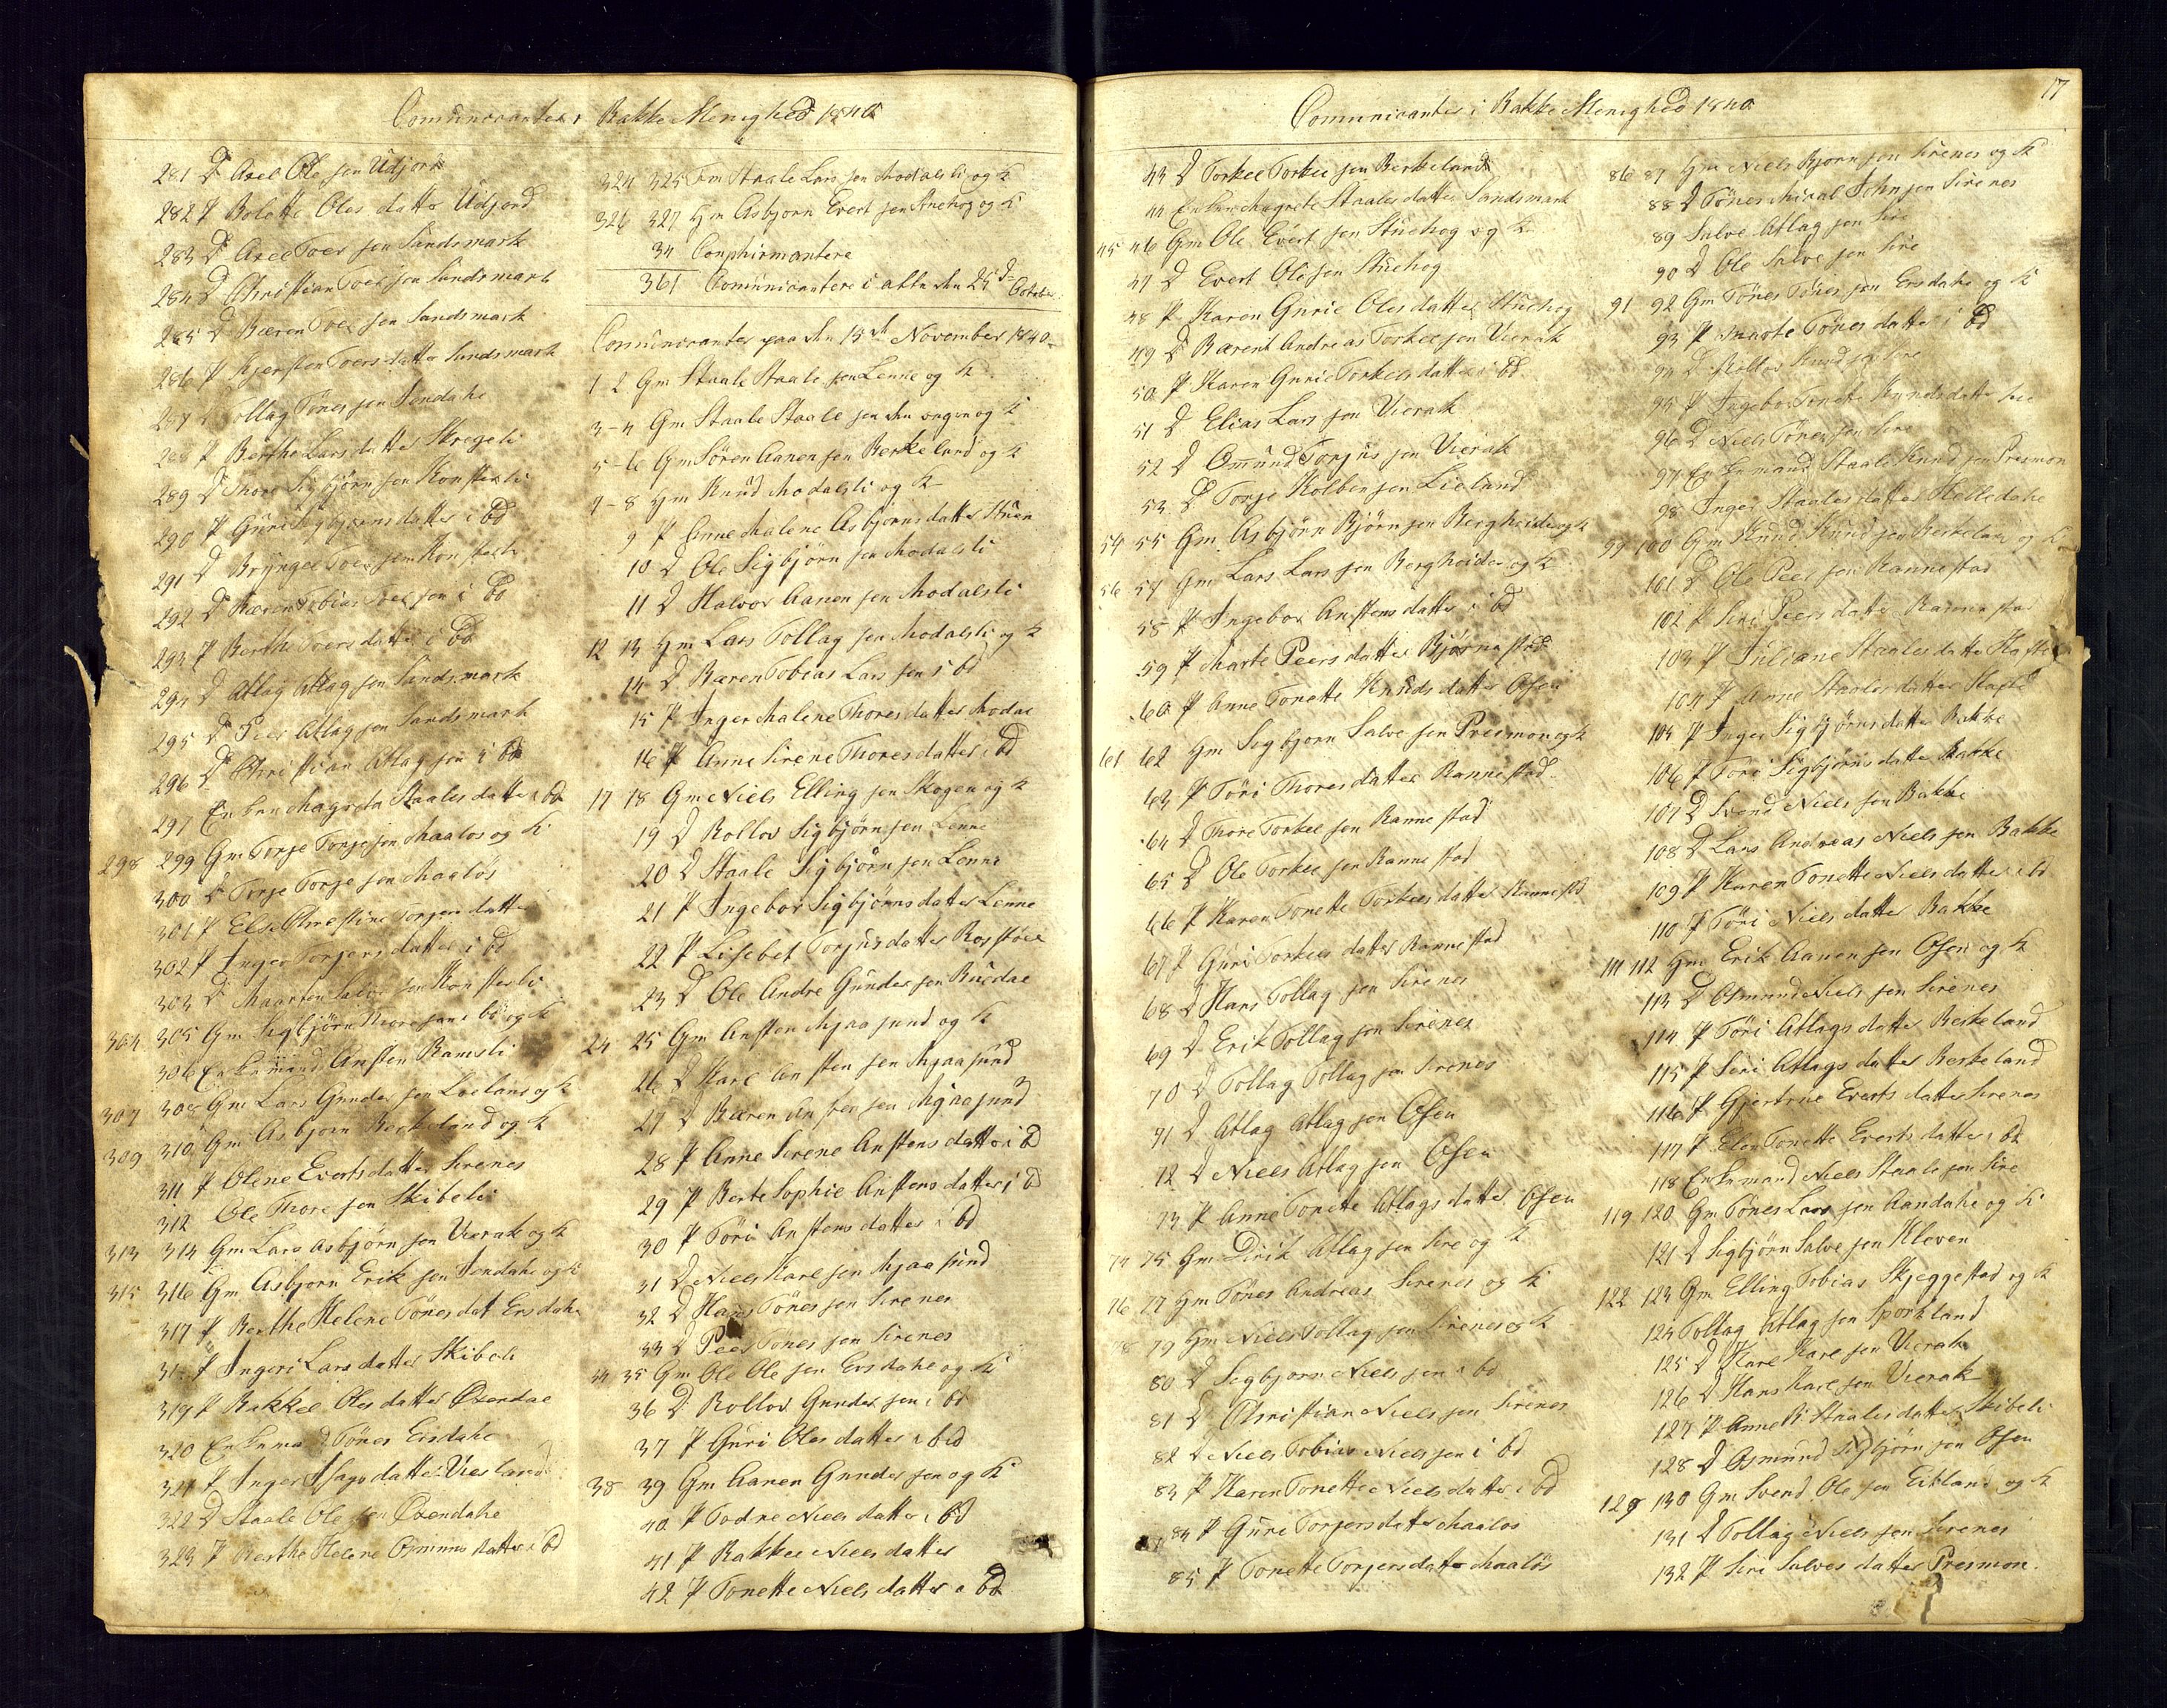 Comunicanter i Bakke Menighed 1840
281 D Axel Ole sen Udjord
282 P Bolette Oles datter Udjord
283 D Axel Toer sen Sandsmark
284 D Christian Toer sen Sandsmark
285 D Bæren Toer sen Sandsmark
286 P Kjersten Toers datter Sandsmark
287 D Tollag Tönes sen Jendahe
288 P Berthe Lars datter Skregeli
289 D Thore Sigbjörn sen Konsterli
290 P Guri Sigbjörns datter i bd
291 D Brynyel Toer sen Konsterli
292 D Bæren Tobias Toer sen i bd
293 P Berthe Toers datter i bd
294 D Atlag Atlag sen Sandsmark
295 D Peer Atlag sen Sandsmark
296 D Christian Atlag sen i bd
297 Enken Magreta Staales datter i bd
298 299 Gm Torje Torje sen Maalös og K
300 D Torje Torje sen Maalös
301 P Else Christine Torjers datter
302 P Inger Torjers datter i bd
303 D Maarten Salve sen Konsterli
304 305 Gm Sigbjörn Thore sen i bd og K
306 Enkemand Ansten Ramsli
307 308 Gm Lars Gunder sen Loeland og K
309 310 Gm Asbjorn Berkeland og K
311 P Olene Everts datter Sirenes
312 Ole Thore sen Skibeli
313 314 Gm Lars Asbjörn sen Vierak og K
315 316 Gm Asbjorn Erik sen Jendahe og K
317 P Berthe Helene Tönes dat Ersdahe
31 P Ingeri Lars datter Skibeli
319 P Rakkel Oles datter Öxendal
320 Enkemand Tönes Ersdahe
321 P Inger Asags datter Viesland
322 D Staale Ole sen Öxendahe
323 P Berthe Helene Osmunds datter i bd
324 325 Gm Staale Lars sen Modalsli og K
326 327 Gm Asbjorn Evert sen Stuehog og K
34 Conphirmantere
361 Comunicantere i alt den 25d October
Comunicanter paa den 15de November 1840
1 2 Gm Staale Staale sen Lenne og K
3-4 Gm Staale Staale sen den ongen og K
5-6 Gm Sören Aanen sen Berkeland og K
7-8 Gm Knud Modalsli og K
9 P Anne Malene Asbjorns datter Stuen
10 D Ole Sigbjörn sen Modalsli
11 D Halvor Aanen sen Modalsli
12 13 Gm Lars Tollag sen Modalsli og K
14 D Bæren Tobias Lars sen i bd
15 P Inger Malene Thores datter Modal
16 P Anne Serene Thores datter i bd
17 18 Gm Niels Elling sen Skogen og K
19 D Rollov Sigbjörn sen Lenne
20 D Staale Sigbjörn sen Lenne
21 P Ingebor Sigbjörns datter Lenne
22 P Lisebet Torjus datter Rosstöel
23 D Ole Andre Gunder sen Ruedal
24 25 Gm Ansten Mjaasund og K
26 D Karl Ansten sen Mjaasund
27 D Bæren Ansten sen Mjaasund
28 P Anne Serene Anstens datter i bd
29 P Berte Sophie Anstens datter i bd
30 P Töri Anstens datter i bd
31 D Niels Karl sen Mjaasund
32 D Hans Tönes sen Sirenes
33 D Peer Tönes sen Sirenes
34 35 Gm Ole Ole sen Ersdahe og K
36 D Rollov Gunder sen i bd
37 P Guri Oles datter i bd
38 39 Gm Aanen Gunder sen og K
40 P Todne Niels datter i bd
41 P Rakkel Niels datter
42 P Tonette Niels datter i bd
17
Comunicanter i Bakke Menighed 1840
43 D Torkel Torkel sen Berkeland
44 Enken Magrete Staales datter Sandsmark
45 46 Gm Ole Evert sen Stuehog og K
47 D Evert Ole sen Stuehog
48 P Karen Gurie Oles datter Stuehog
49 D Bærent Andreas Torkel sen Vierak
50 P Karen Gurie Torkels datter i bd
51 D Elias Lars sen Vierak
52 D Omund Torjus sen Vierak
53 D Torje Kolben sen Lieland
54 55 Gm Asbjörn Bjørn sen Bergheide og K
56 57 Gm Lars Lars sen Bergheide og K
58 P Ingebor Anstens datter i bd
59 P Marte Peers datter Bjørnestad
60 P Anne Tonette Knuds datter Osen
61 62 Gm Segbjorn Salve sen Presmon og K
63 P Töri Thores datter Rannestad
64 D Thore Torkel sen Rannestad
65 D Ole Torkel sen Rannestad
66 P Karen Tonette Torkels datter Rannestad
67 P Guri Torkels datter Rannestad
68 D Hans Tollag sen Sirenes
69 D Erik Tollag sen Sirenes
70 D Tollag Tollag sen Sirenes
71 D Atlag Atlag sen Osen
72 D Niels Atlag sen Osen
73 P Anne Tonette Atlags datter Osen
74 75 Gm Dirik Atlag sen Sire og K
76 77 Gm Tönes Andreas Sirenes og K
78 79 Gm Niels Tollag sen Sirenes og K
80 D Segbjorn Niels sen i bd
81 D Christian Niels sen Sirenes
82 D Niels Tobias Niels sen i bd
83 P Karen Tonette Niels datter i bd
84 P Guri Torjers datter Maalos
85 P Tonette Torjers datter Maalös
86 87 Gm Niels Bjorn sen Sirenes og K
88 D Tönes Mical John sen Sirenes
89 Salve Atlag sen Sire
90 D Ole Salve sen Sire
91 92 Gm Tönes Tönes sen Ersdahe og K
93 P Marte Tönes datter i bd
94 D Rollov Knud sen Sire
95 P Ingebor Tonette Knuds datter Sire
96 D Niels Tönes sen Sire
97 Enkemand Staale Knud sen Presmon
98 Inger Staales datter Helledahe
99 100 Gm Knud Knud sen Berkeland og K
101 D Ole Peer sen Rannestad
102 P Siri Peers datter Rannestad
103 P Juliane Staales datter Hafte
104 P Anne Staales datter Hafte
105 P Inger Sigbjörns datter Bakke
106 P Töri Sigbjörns datter Bakke
107 D Svend Niels sen Bakke
108 D Lars Andreas Niels sen Bakke
109 P Karen Tonette Niels datter i bd
110 P Töri Niels datter Bakke
111 112 Gm Erik Aanen sen Osen og K
113 D Osmund Niels sen Sirenes
114 P Töri Atlags datter Berkeland
115 P Siri Atlags datter Berkeland
116 P Gjertrue Everts datter Sirenes
117 P Elen Tonette Everts datter i bd
118 Enkemand Niels Staale sen Sire
119 120 Gm Tönes Lars sen Aandahe og K
121 D Segbjörn Salve sen Kleven
122 123 Gm Elling Tobias Skjeggestad og K
124 Tollag Atlag sen Sporkland
125 D Karl Karl sen Vierak
126 D Hans Karl sen Vierak
127 P Anne Staales datter Skibeli
128 D Osmund Sigbjörn sen Osen
129 130 Gm Svend Ole sen Eikland og K
131 D Tollag Niels sen Sirenes
132 P Siri Salves datter Presmon